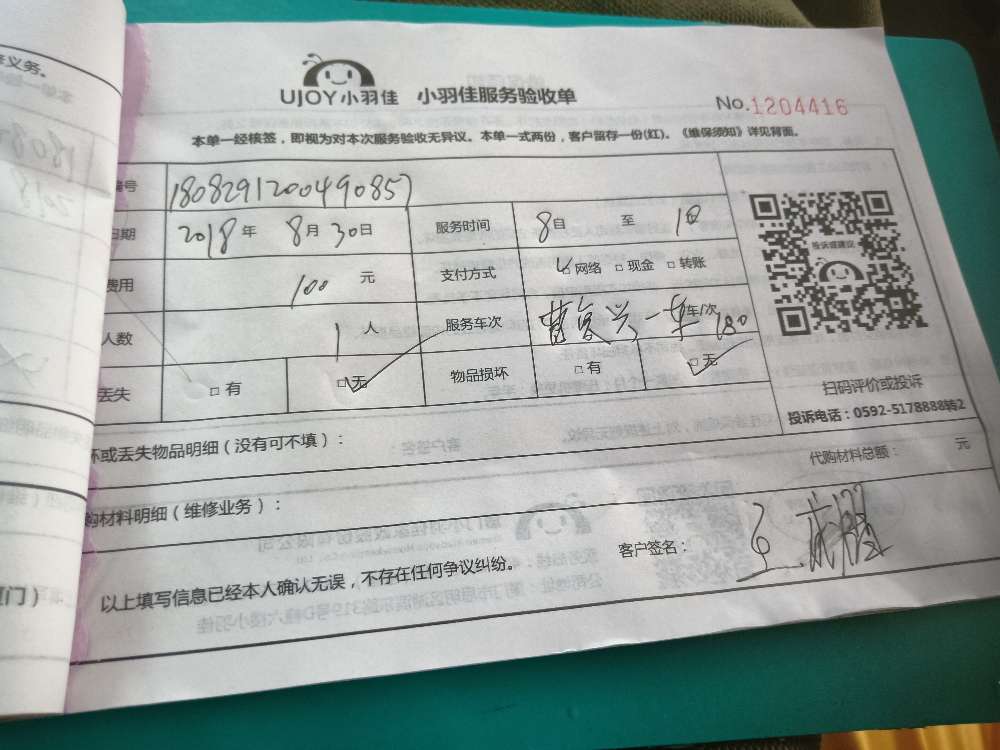 义务。
UJOY小羽佳 小羽佳服务验收单
No.1204416
本单一经核签，即视为对本次服务验收无异议。本单一式两份，客户留存一份(红)。《维保须知》详见背面。
编号 1808291200490857
日期 2018年 8月30日 服务时间 8自 至 10
费用 100 元 支付方式 网络 现金 转账
人数 1 人 服务车次 曹复兴一车 车/次 180
丢失 有 无 物品损坏 有 无
投诉或建议
扫码评价或投诉
投诉电话：0592-5178888转2
坏或丢失物品明细（没有可不填）：
购材料明细（维修业务）： 代购材料总额： 元
以上填写信息已经本人确认无误，不存在任何争议纠纷。 客户签名：
门）